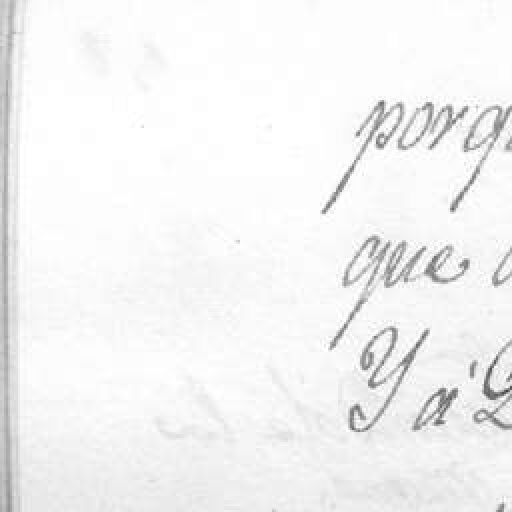 porqu
que
Y a'